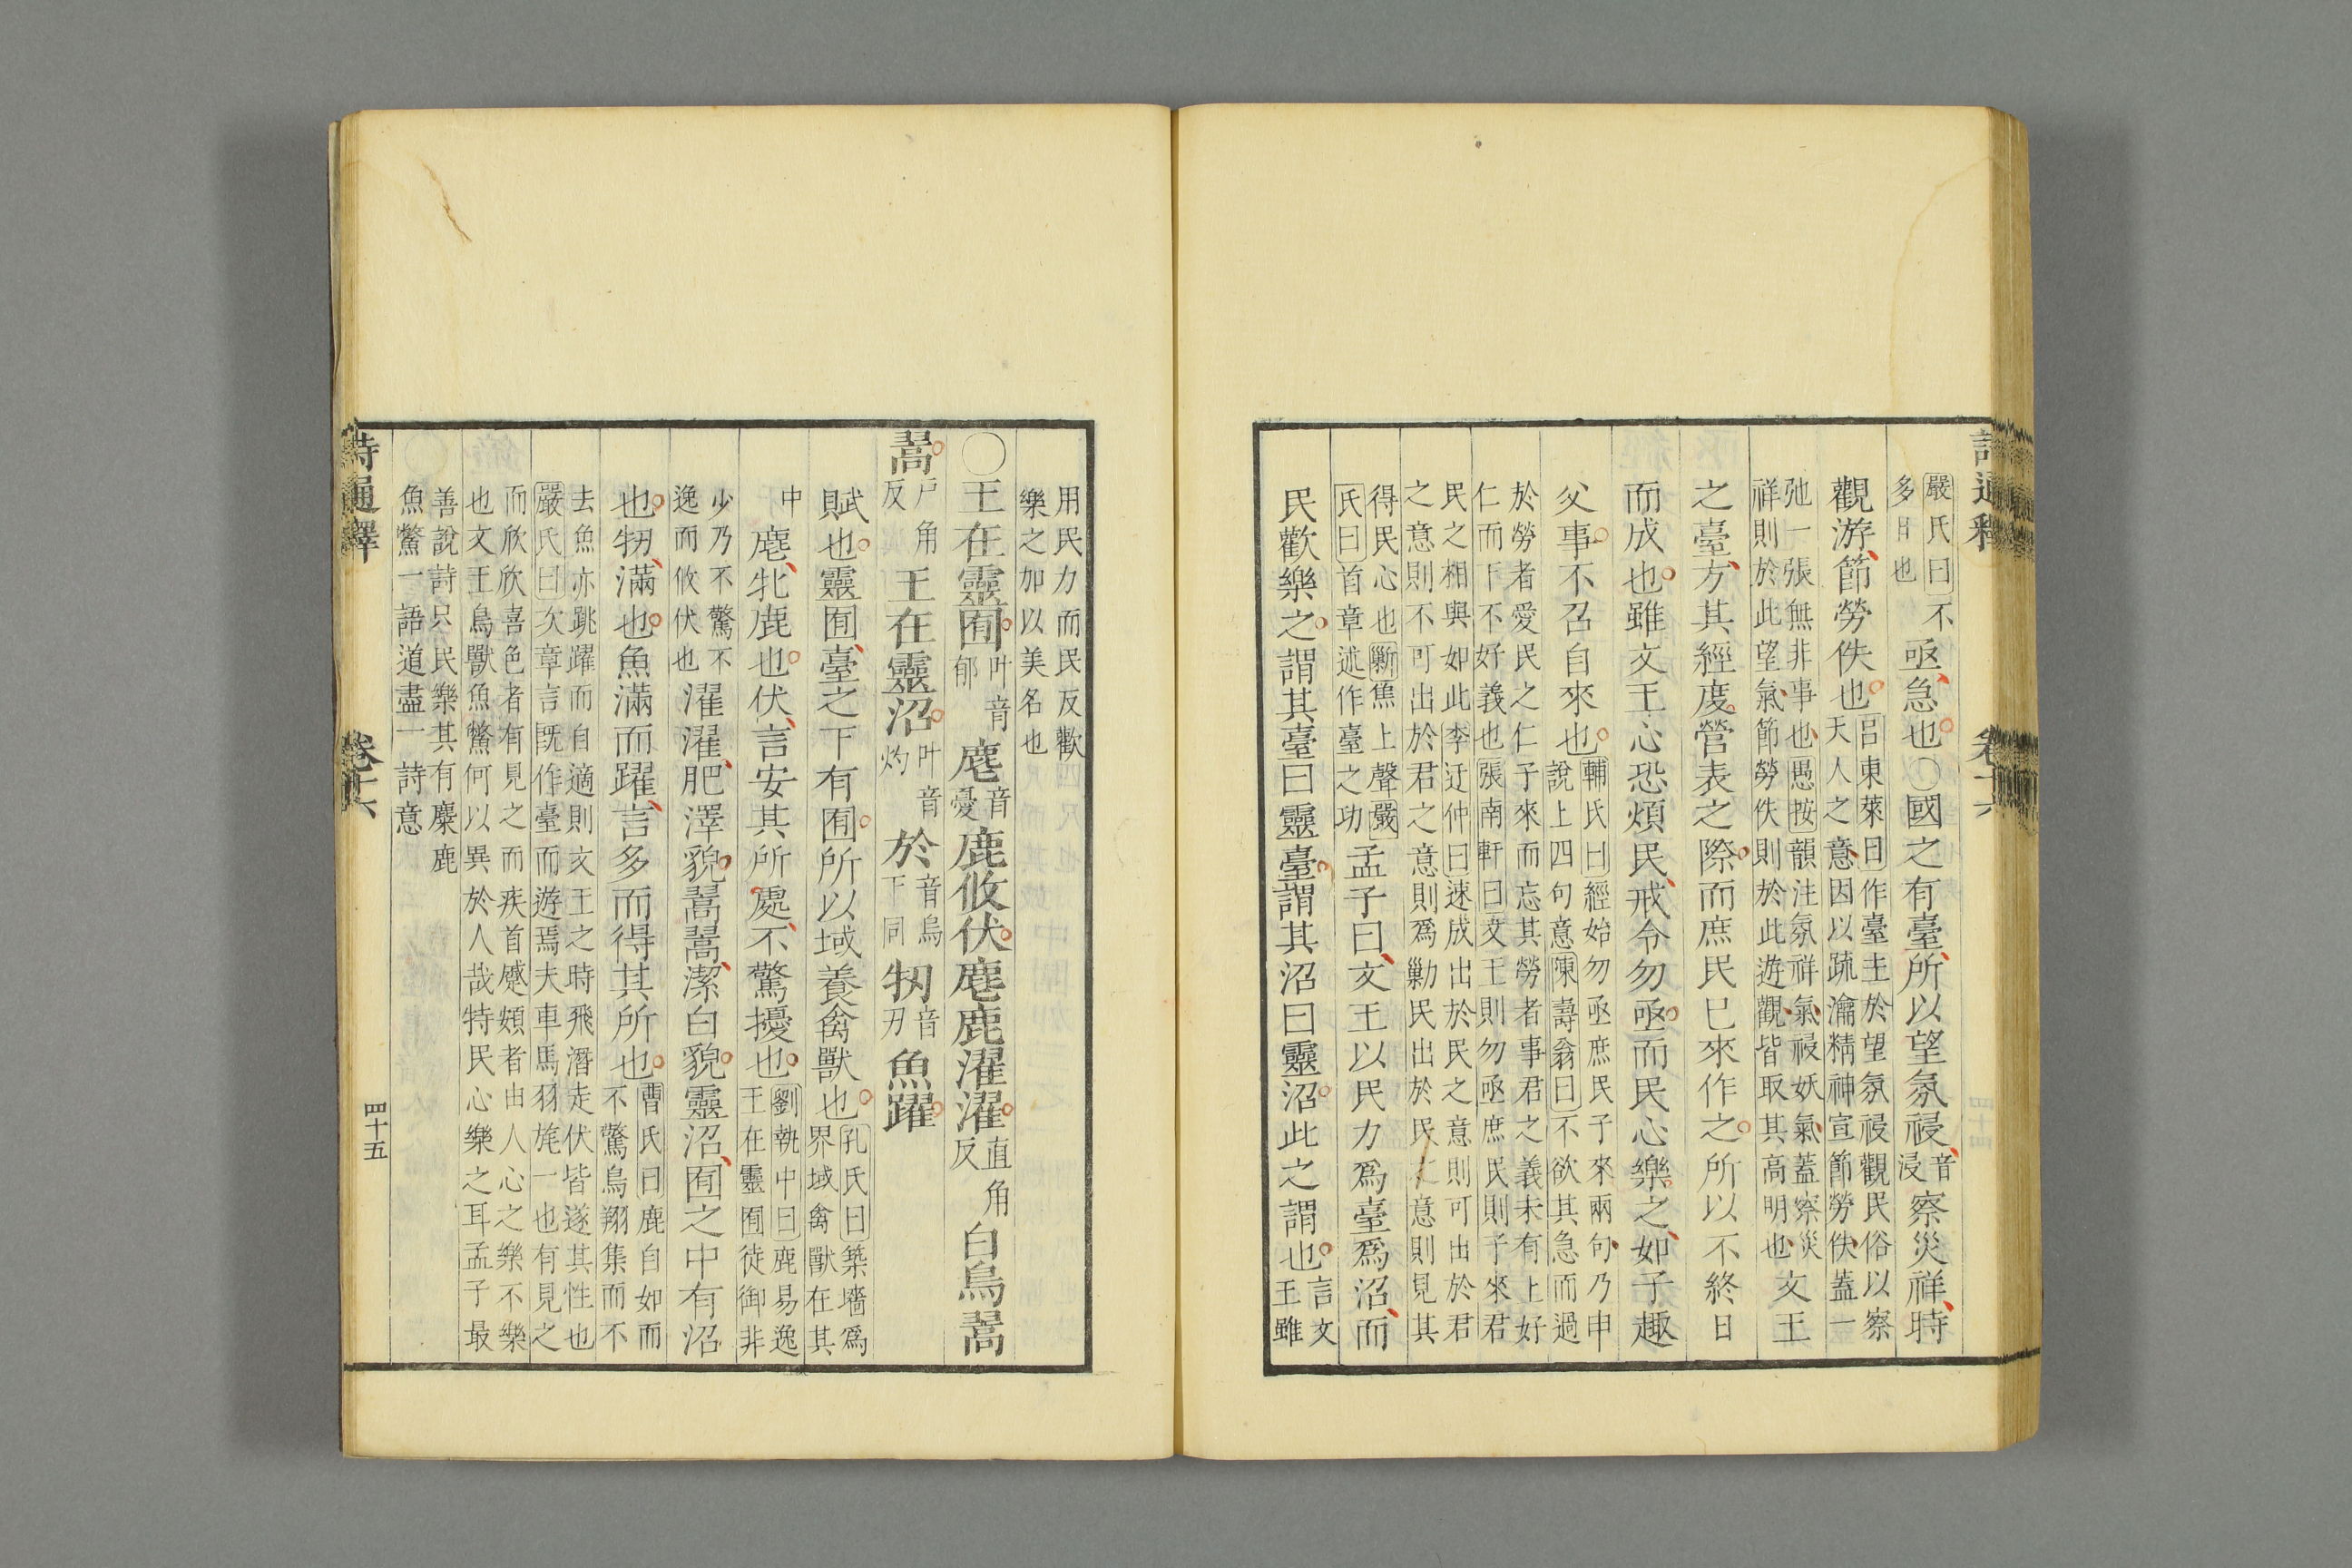 詩通釋 卷十六
嚴氏曰不多日也亟急也○國之有臺所以望氛祲音浸察災祥時
觀游節勞佚也呂東萊曰作臺主於望氛祲觀民俗以察天人之意因以疏瀹精神宣節勞佚蓋一
弛一張無非事也愚按韻注氛祥氣祲妖氣蓋察災祥則於此望氣節勞佚則於此遊觀皆取其高明也文王
之臺方其經度營表之際而庶民已來作之所以不終日
而成也雖文王心恐煩民戒令勿亟而民心樂之如子趣
父事不召自來也輔氏曰經始勿亟庶民子來兩句乃申說上四句意陳壽翁曰不欲其急而過
於勞者愛民之仁子來而忘其勞者事君之義未有上好仁而下不好義也張南軒曰文王則勿亟庶民則子來君
民之相與如此李迂仲曰速成出於民之意則可出於君之意則不可出於君之意則爲勦民出於民之意則見其
得民心也勦焦上聲嚴氏曰首章述作臺之功孟子曰文王以民力爲臺爲沼而
民歡樂之謂其臺曰靈臺謂其沼曰靈沼此之謂也言文王雖
用民力而民反歡樂之加以美名也
○王在靈囿叶音郁麀音憂鹿攸伏麀鹿濯濯直角反白鳥翯
翯户角反王在靈沼叶音灼於音烏下同牣音刃魚躍
賦也靈囿臺之下有囿所以域養禽獸也孔氏曰築墻爲界域禽獸在其
中麀牝鹿也伏言安其所處不驚擾也劉執中曰鹿易逸王在靈囿徒御非
少乃不驚不逸而攸伏也濯濯肥澤貌翯翯潔白貌靈沼囿之中有沼
也牣滿也魚滿而躍言多而得其所也曹氏曰鹿自如而不驚鳥翔集而不
去魚亦跳躍而自適則文王之時飛潛走伏皆遂其性也嚴氏曰次章言既作臺而遊焉夫車馬羽旄一也有見之
而欣欣喜色者有見之而疾首蹙頞者由人心之樂不樂也文王鳥獸魚鱉何以異於人哉特民心樂之耳孟子最
善說詩只民樂其有麋鹿魚鱉一語道盡一詩意
詩通釋 卷十六 四十五